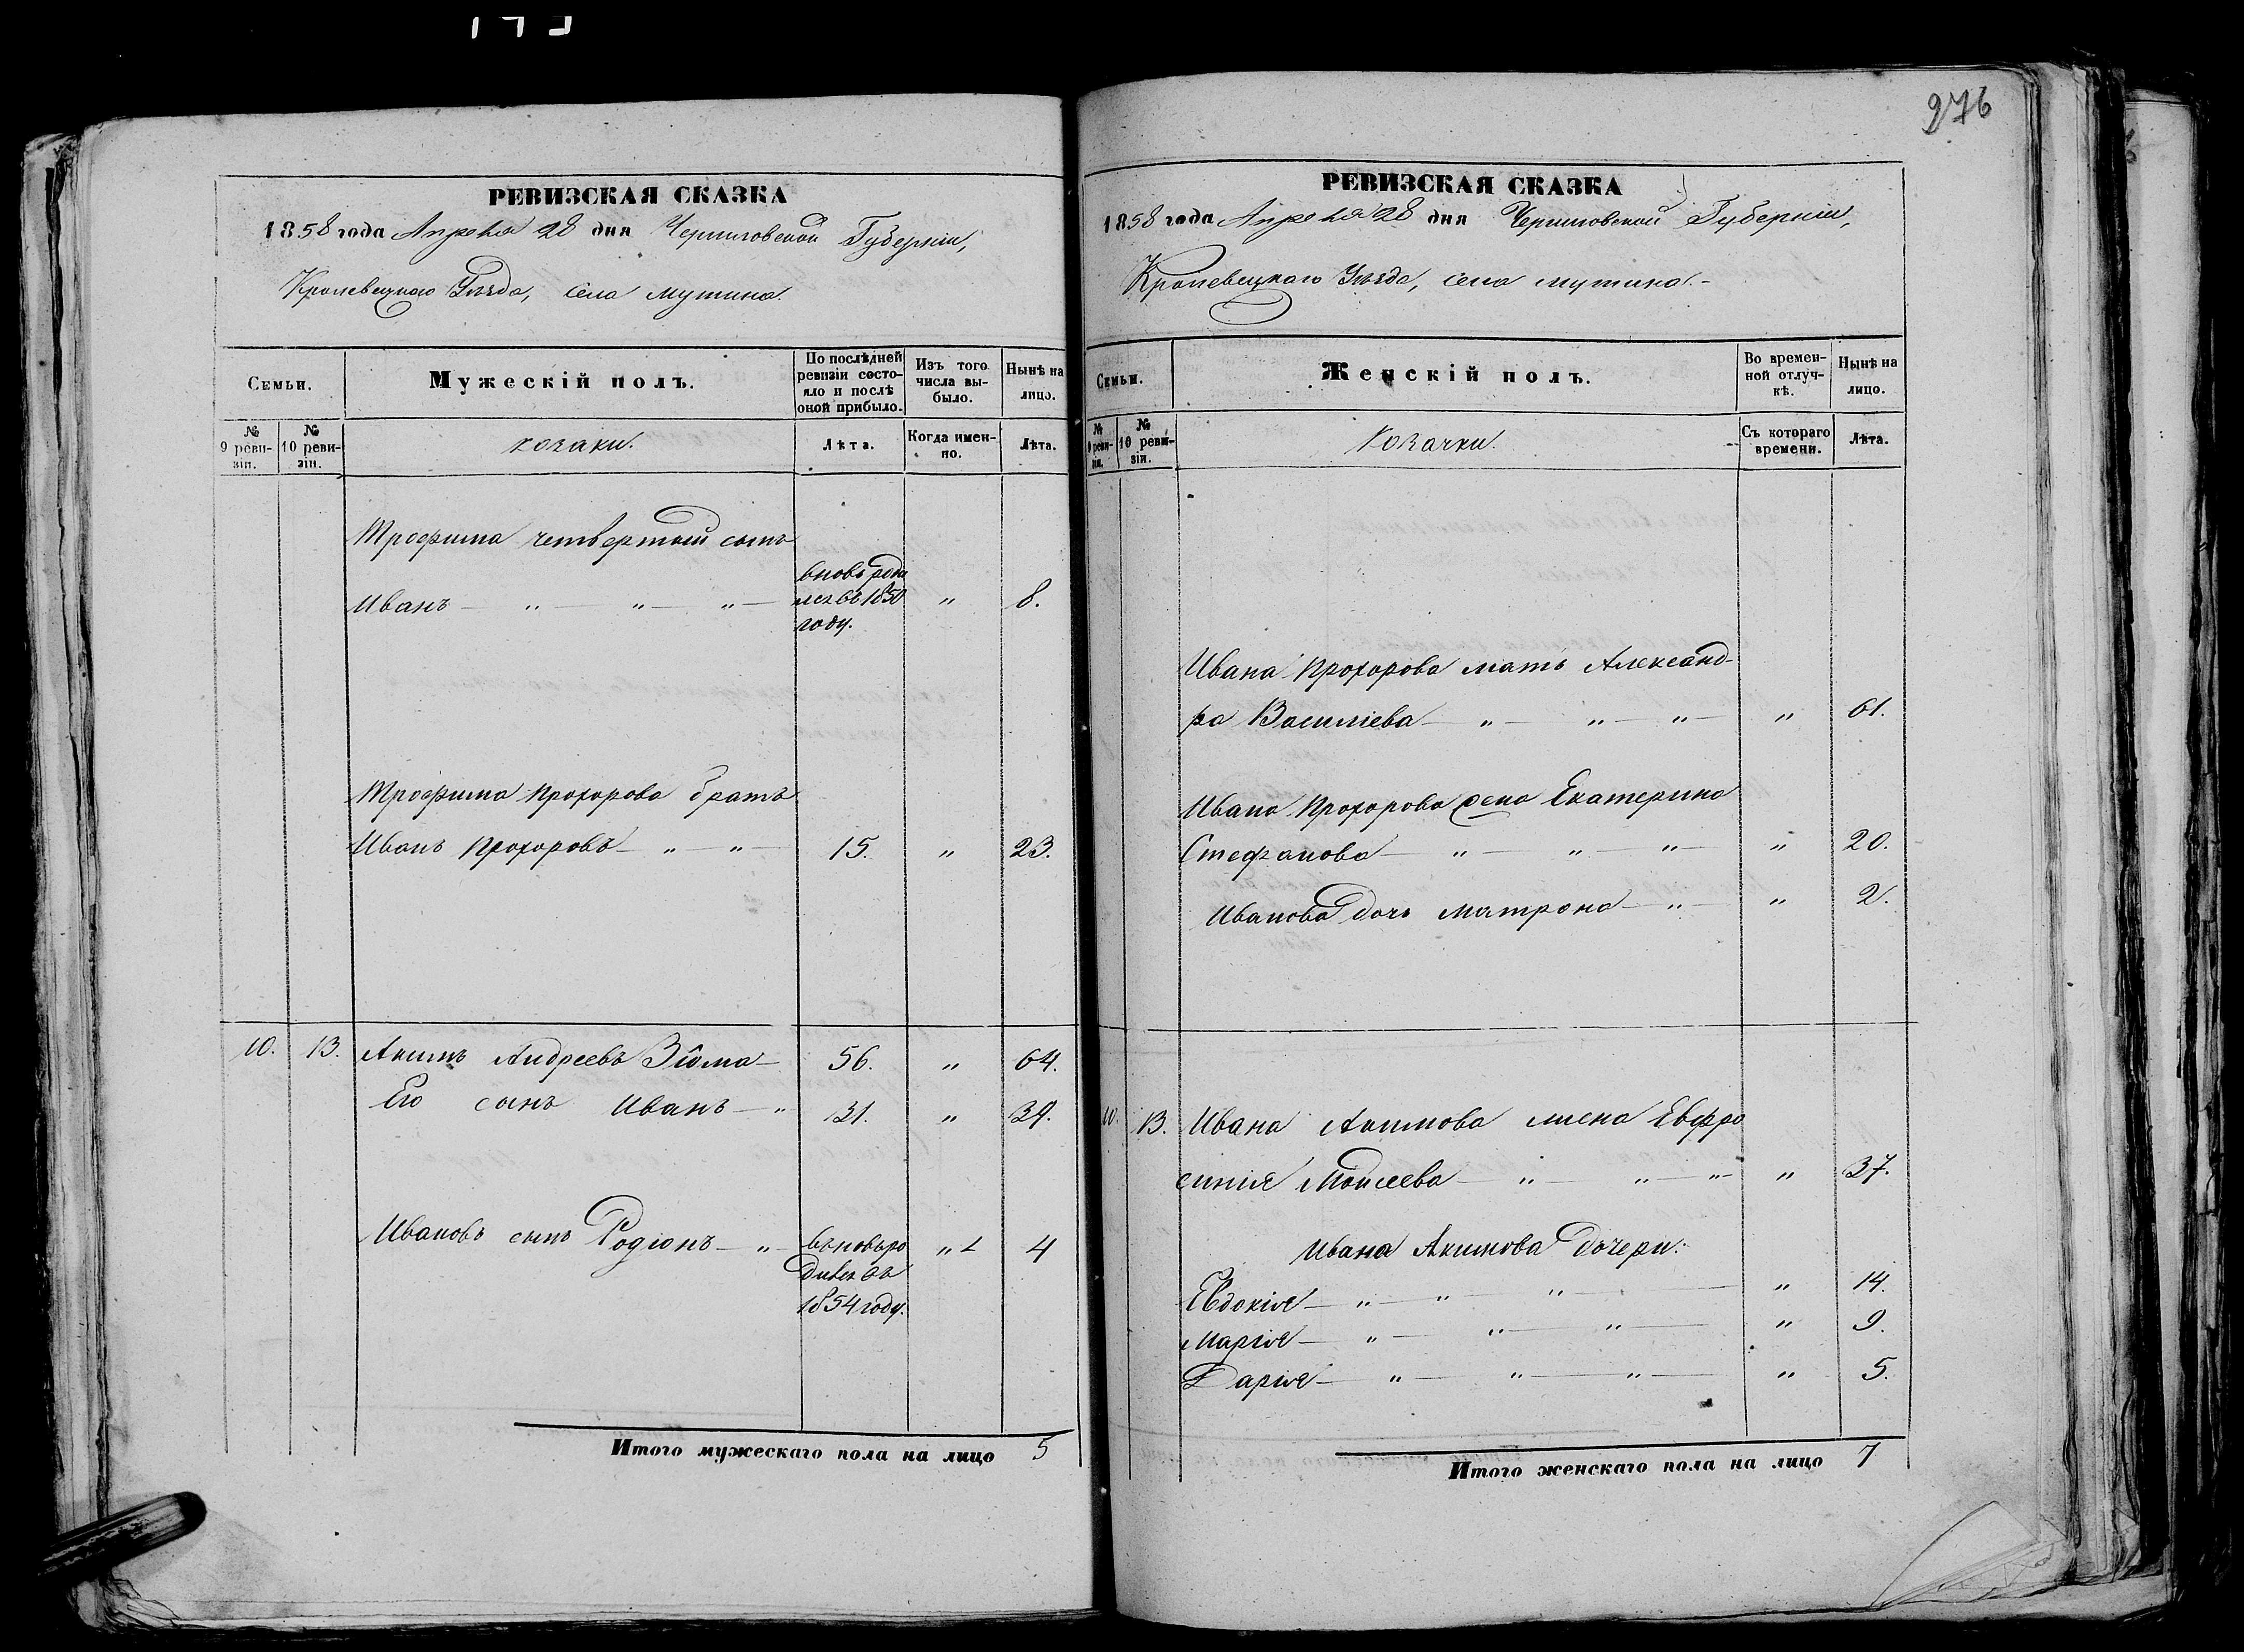 276
РЕВИЗСКАЯ СКАЗКА
1858 года Апреля 28 дня Черниговской Губерніи,
Кролевецкаго Уѣзда, села Мутина.
Семьи.
Мужескій полъ.
По послѣдней ревизіи состояло и послѣ оной прибыло.
Изъ того числа выбыло.
Нынѣ на лицо.
№ 9 ревизіи.
№ 10 ревизіи.
козаки.
Лѣта.
Когда именно.
Лѣта.
Трофима четвертый сынъ
Иванъ — " — " — " — вновь роди
лся въ 1850 " 8.
году.
Трофима Прохорова братъ
Иванъ Прохоровъ — " — " — 15. " 23.
10. 13. Акимъ Андреевъ Зюма — 56. " 64.
Его сынъ Иванъ — " 31. " 39.
Ивановъ сынъ Родіонъ — " — вновь ро " 4
дился въ
1854 году.
Итого мужескаго пола на лицо 5
РЕВИЗСКАЯ СКАЗКА
1858 года Апреля 28 дня Черниговской Губерніи,
Кролевецкаго Уѣзда, села Мутина. -
Семьи.
Женскій полъ.
Во временной отлучкѣ.
Нынѣ на лицо.
№ 9 ревизіи.
№ 10 ревизіи.
Козачки.
Съ котораго времени.
Лѣта.
Ивана Прохорова мать Александ-
ра Василіева — " — " — " — " 61.
Ивана Прохорова жена Екатерина
Стефанова — " — " — " — " 20.
Иванова дочь Матрона — " — " 2.
10. 13. Ивана Акимова жена Евфро
синія Моисеева — " — " — " — " 37.
Ивана Акимова дочери:
Евдокія — " — " — " — " 14.
Марія — " — " — " — " 9.
Дарія — " — " — " — " 5.
Итого женскаго пола на лицо 7